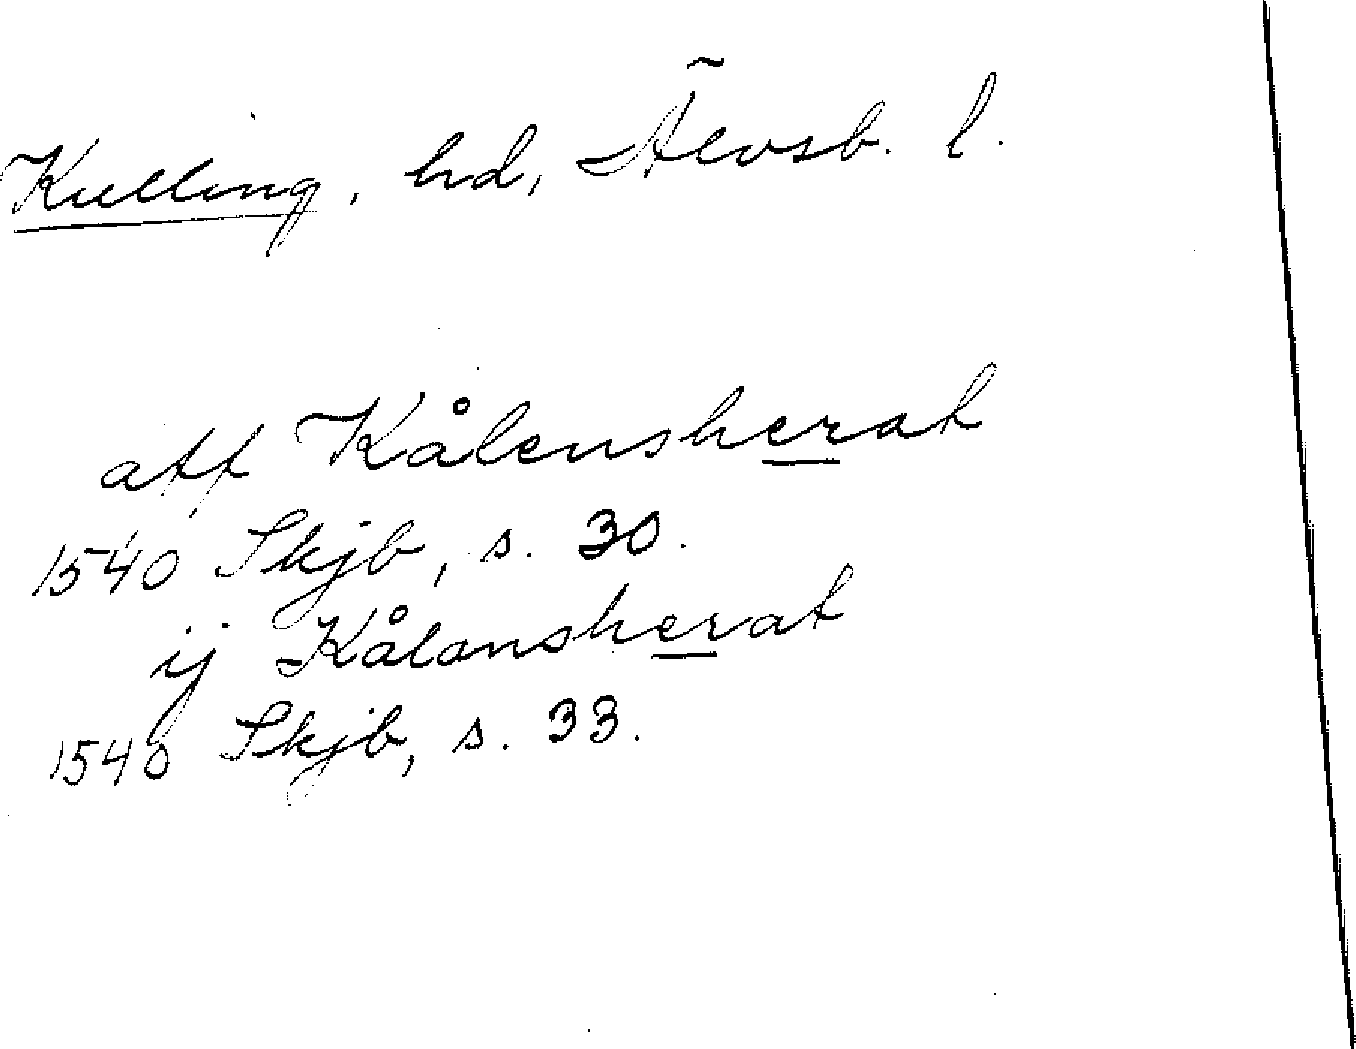 Kulling, hd, Älvsb. l.
aff Kålensherat
1540 Skjb, s. 30.
ij Kålansherat
1540 Skjb, s. 33.